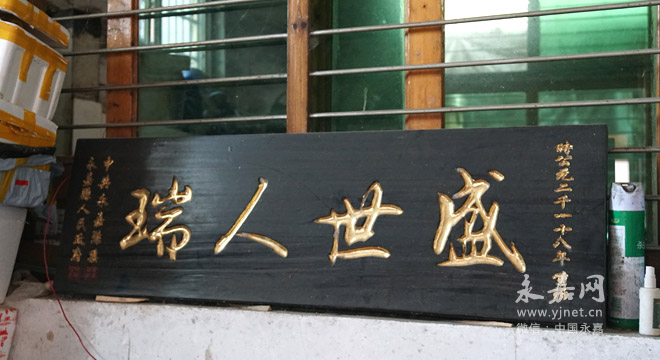 时公元二千〇十八年
盛世人瑞
中共永嘉县委
永嘉县人民政府
永嘉网
www.yjnet.cn
微信:中国永嘉